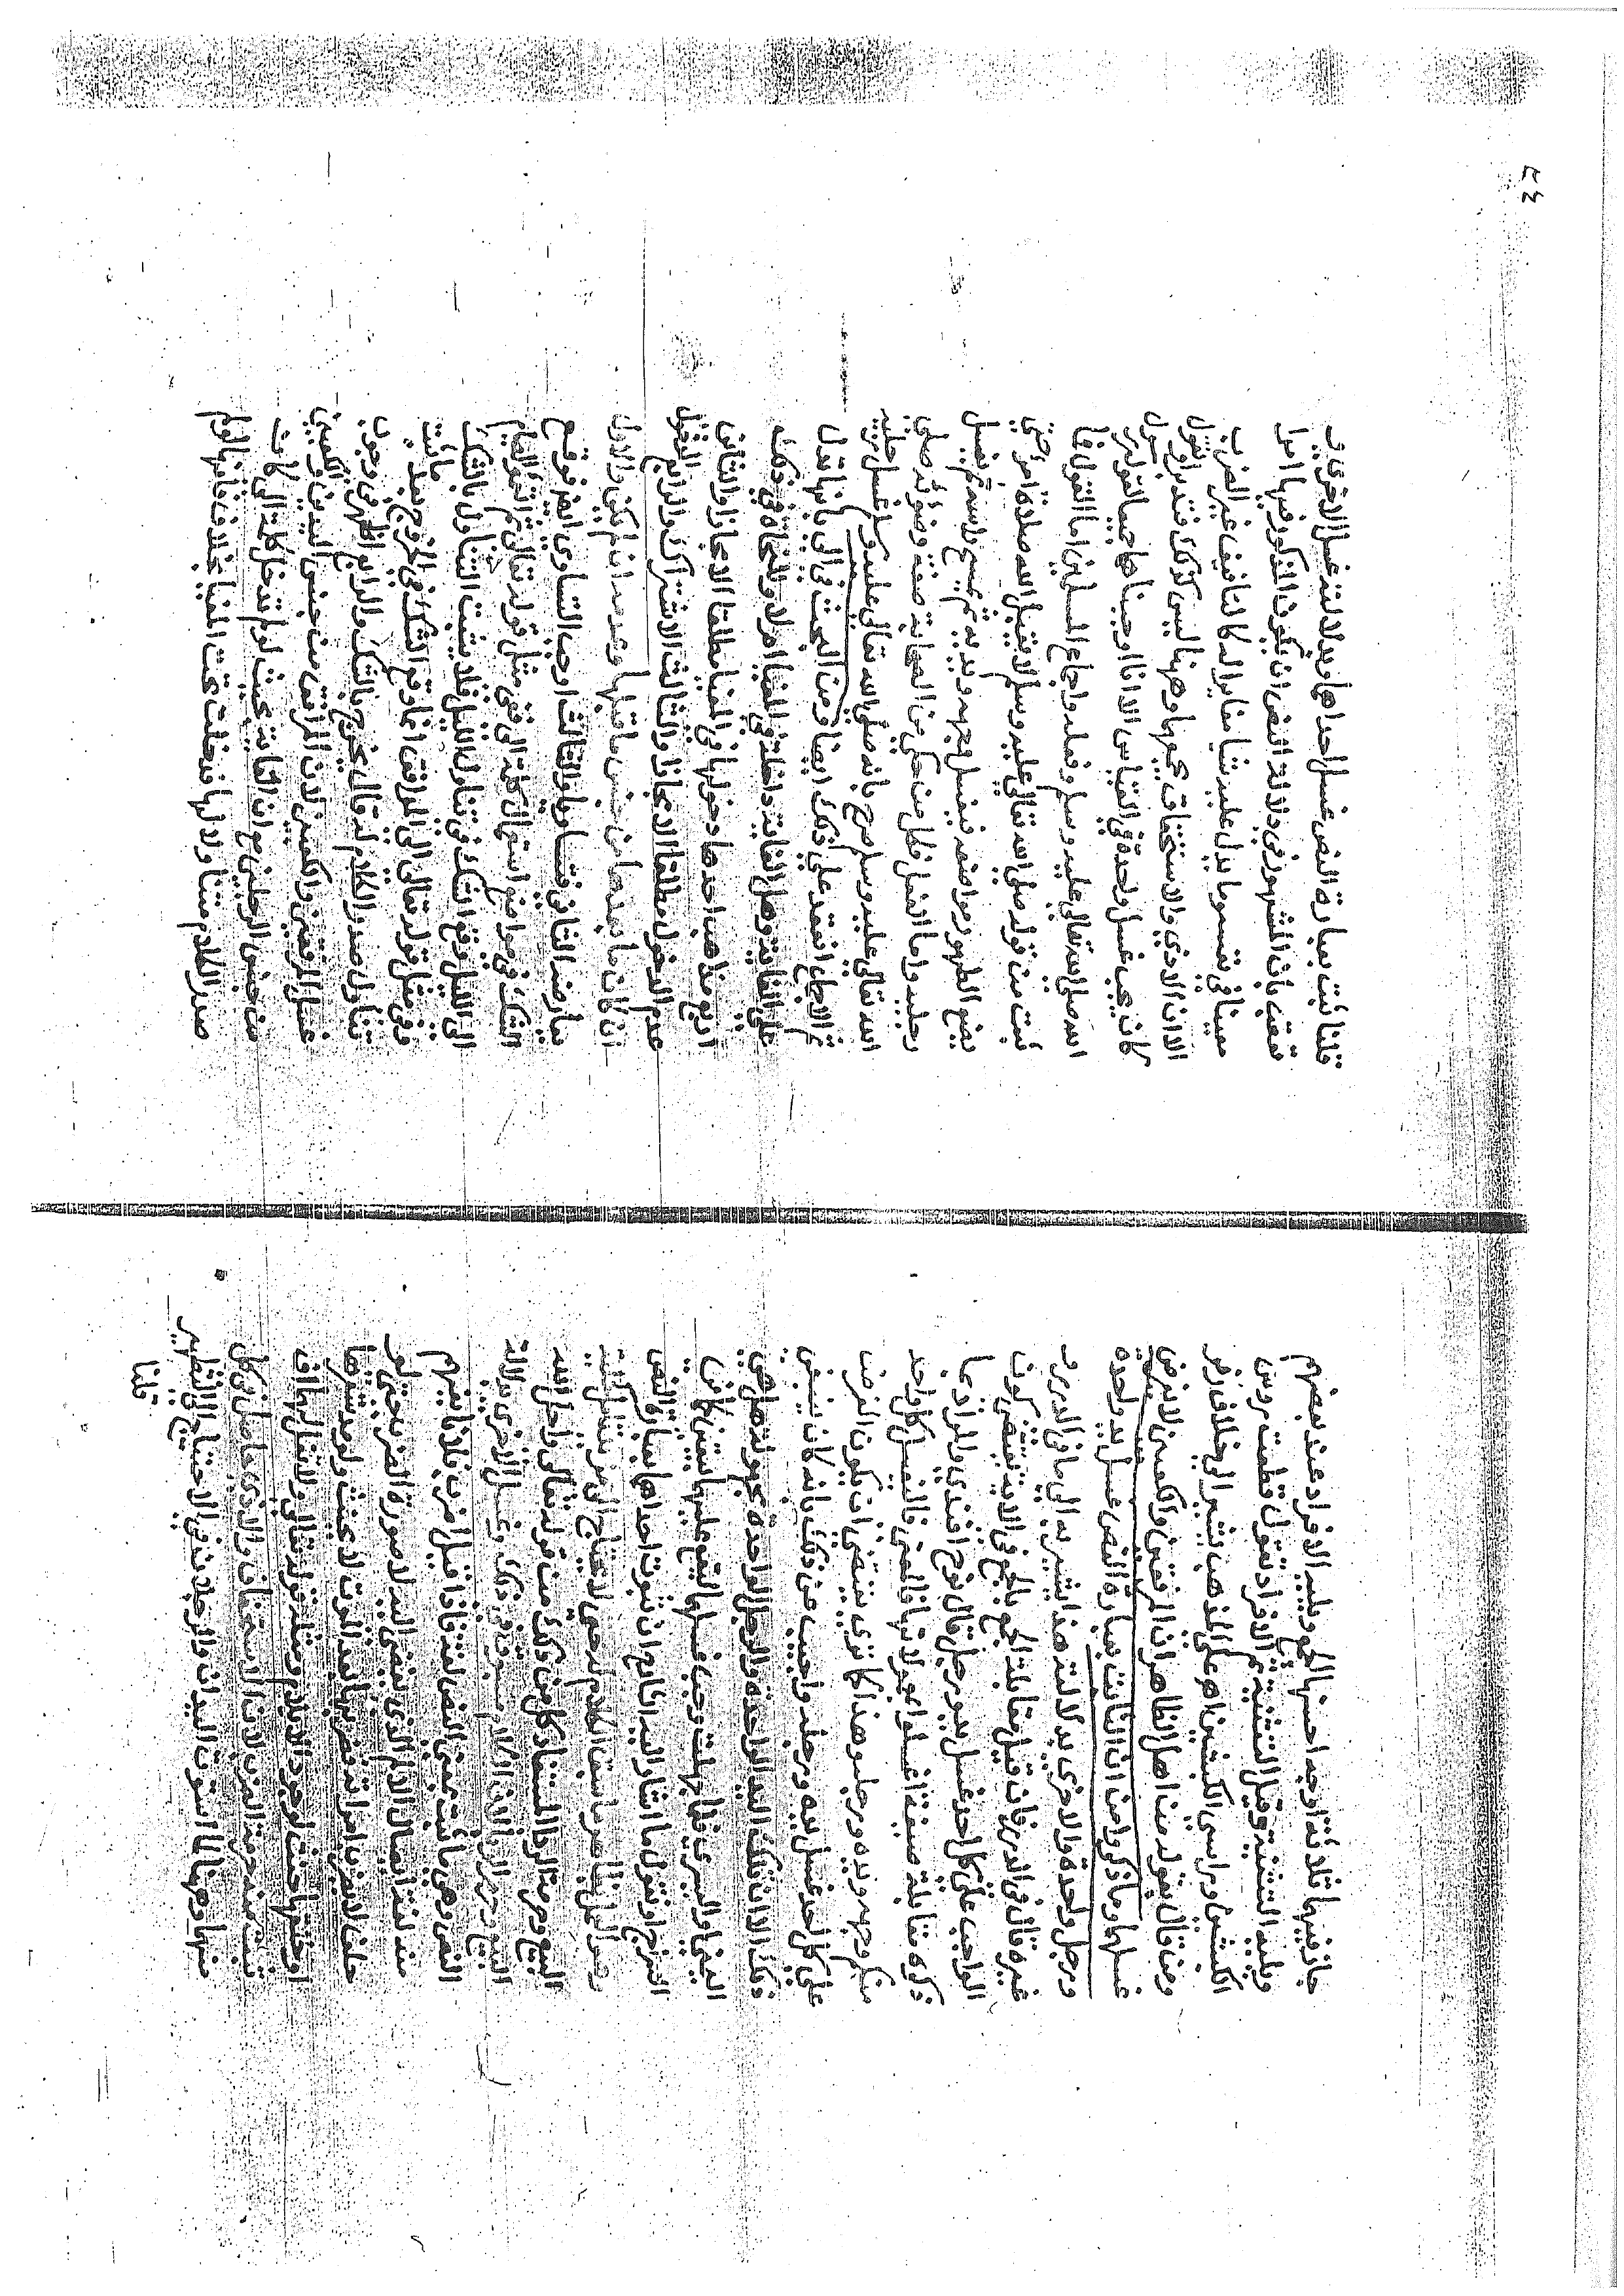 جاز فيها ثلاثة اوجه احسنها الجمع ويليه الافراد عند بعضهم
ويليه التثنية وقيل التثنية ثم الافراد تقول قطعت رؤس
الكبشين وراسي الكبشين اهر على المذهب يشير الى خلاف زفر
ومن قال بقوله من اهل الظاهر ان المرفقين والكعبين لا يفرض
غسلهما وما ذكروا من ان الثابت بعبارة النص غسل يد واحدة
ورجل واحدة والاخرى بدلالته هذا يشير به الى ما في الدرر و
غيره قال في الدرر فان قيل مقابلة الجمع بالجمع في الاية تقتضي كون
الواجب على كل احد غسل يد ورجل قال نوح افندي والمراد بما
ذكره مقابلة صيغة اغسلوا بمدلولاتها فالمعنى فاليغسل كل واحد
منكم وجهه ويده ورجله وهذا كما ترى يقتضي ان يكون الفرض
على كل احد غسل يده ورجله واجيب عن ذلك بانه كان ينبغي
ذلك الا ان تلك اليد الواحدة والرجل الواحدة مجهولة هل هي
اليمنى او اليسرى فلما جهلت وجب غسلهما ليقع عليها بيقين كما في
السراج ونقول ما اشار اليه الشارح ان ثبوت احداها بعبارة النص
وهو العمل بظاهر ما سبق الكلام له حتى لا يحتاج الى مزيد تامل كحلية
البيع وحرمة الربا المستفاد كل من ذلك من قوله تعالى واحل الله
البيع وحرم الربا لان الكلام مسوق في ذلك وغسل الاخرى بدلالة
النص وهي ما ثبت بمعنى النص لغة فاذا قيل اضرب فلانا يفهم
منه لغة ايصال الالم الذي يفضى اليه لا صورة الضرب حتى لو
حلف لا يضرب امراته فضربها بعد الموت لا يحنث ولو مد شعرها
او خنقها حنث لوجود الايلام ومثله قوله تعالى ولا تقل لهما اف
فثبت منه حرمة الضرب لان الاستخفاف والاذى حاصل في كل
منهما وههنا لما استوت اليدان والرجلان في الاحتياج الى التطهير
قلنا
٤٤
قلنا ثبت بعبارة النص غسل احداها وبدلالته غسل الاخرى و
تعقب بان المشهور في دلالة النص ان يكون المذكور فيها امرا
معينا في نفسه وما يدل عليه شيا مغايرا له كالتافيف غير الضرب
الا ان الاذى والاستخفاف يجمعهما وههنا ليس كذلك فتدبر او نقول
كان يجب غسل واحدة في القياس الا انا اوجبناها جميعا لقول رسول
الله صلى الله تعالى عليه وسلم وفعله واجماع المسلمين اما القول فما
ثبت من قوله صلى الله تعالى عليه وسلم لا يقبل الله صلاة امرء حتى
يضع الطهور مواضعه فيغسل وجهه ويديه ثم يمسح براسه ثم يغسل
رجليه واما الفعل فكل من حكى من الصحابة صفة وضوئه صلى
الله تعالى عليه وسلم صرح بانه صلى الله تعالى عليه وسلم غسل رجليه
ثم الاجماع انعقد على ذلك ايضا ومن البحث في الى بانها تدل
على الغاية وهل الغاية داخلة في المغيا ام لا وللنحاة في ذلك
اربع مذاهب احدها دخولها في المغيا مطلقا الا مجازا والثاني
عدم الدخول مطلقا الا مجازا والثالث الاشتراك والرابع الدخول
ان كان ما بعدها من جنس ما قبلها وعدمه ان لم يكن والاول
يعارضه الثاني فتساويا والثالث اوجب التساوي ايضا فوقع
الشك في مواضع استعمال كلمة الى ففي مثل قوله تعالى ثم اتموا الصيام
الى الليل وقع الشك في تناول الليل فلا يثبت التناول بالشك
وفي مثل قوله تعالى الى المرافق انما وقع الشك في الخروج بعد ما ثبت
تناول صدر الكلام له قال يخرج بالشك والرابع اظهر في وجوب
غسل المرفقين والكعبين لان المرافق من جنس اليد والكعبين
من جنس الرجلين مع ان الغاية بحيث لو لم تدخل كلمة الى كانت
صدر الكلام متناولا لها فدخلت تحت المغيا بخلاف ما فيها لو لم